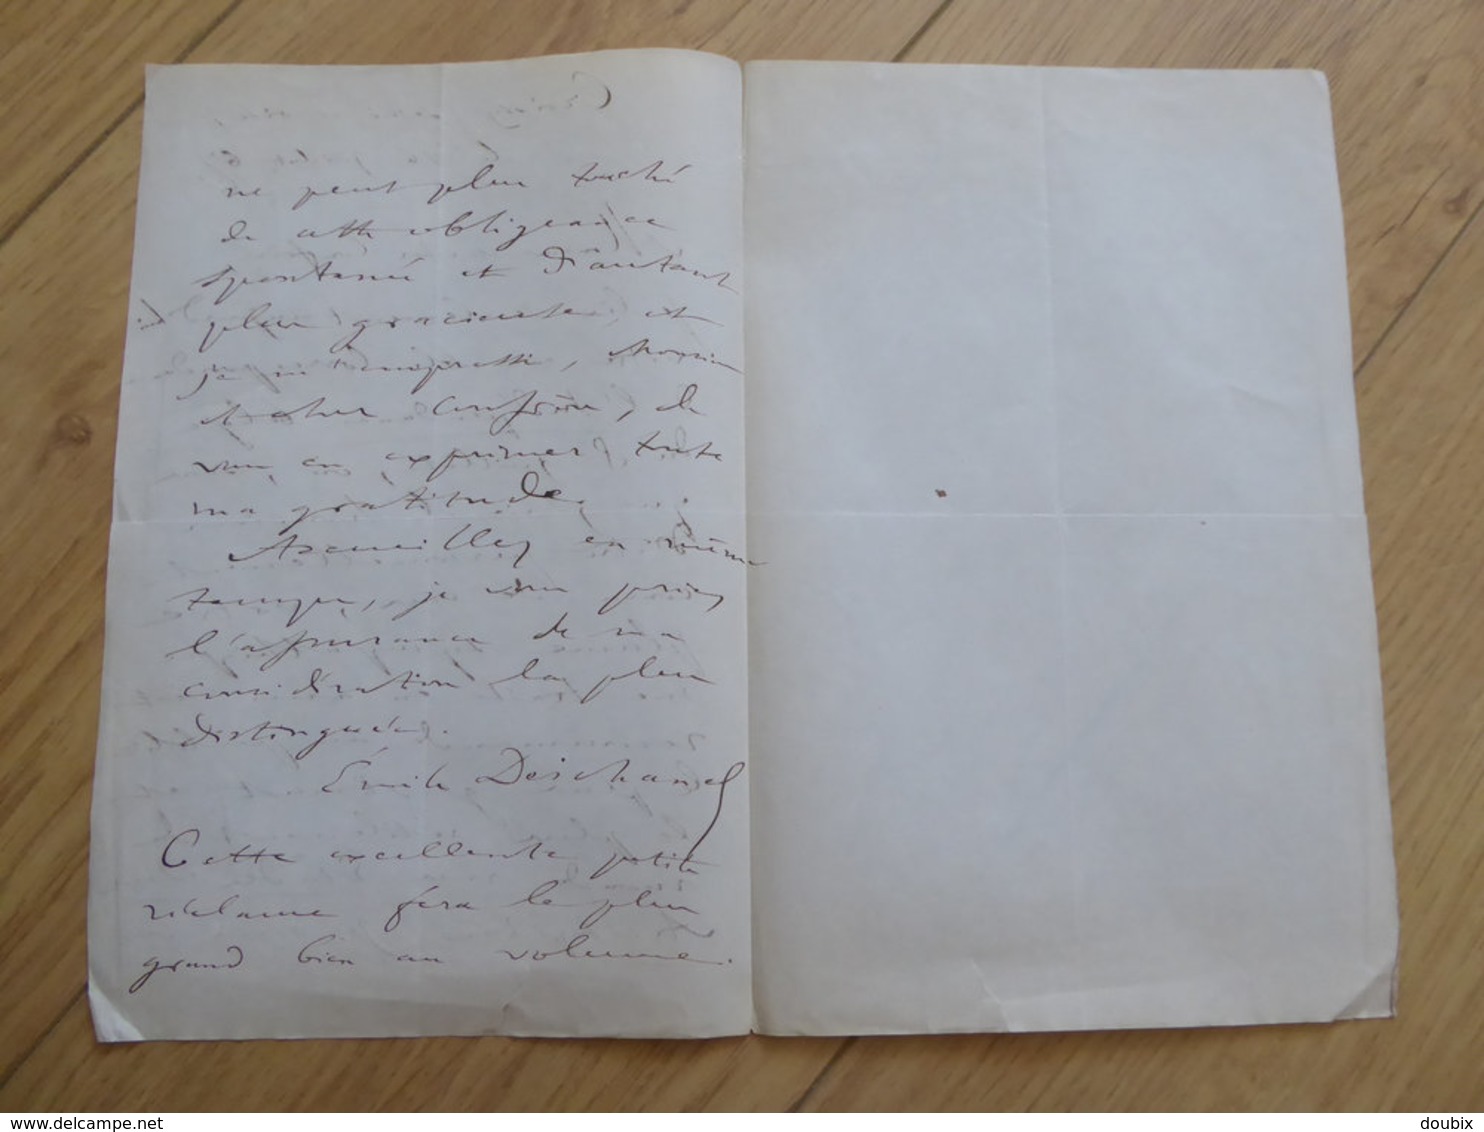 ne peut plus touché
de cette obligeance
spontanée et d'autant
plus gracieuse, et
je m'empresse, Monsieur
et cher Confrère, de
vous en exprimer toute
ma gratitude.
Accueillez en même
temps, je vous prie,
l'assurance de ma
considération la plus
distinguée.
Émile Deschanel
Cette excellente petite
réclame fera le plus
grand bien au volume.
www.delcampe.net
doubix